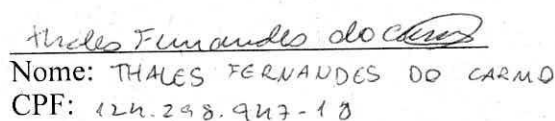 Thales Fernandes do Carmo
Nome: THALES FERNANDES DO CARMO
CPF: 124.298.947-18